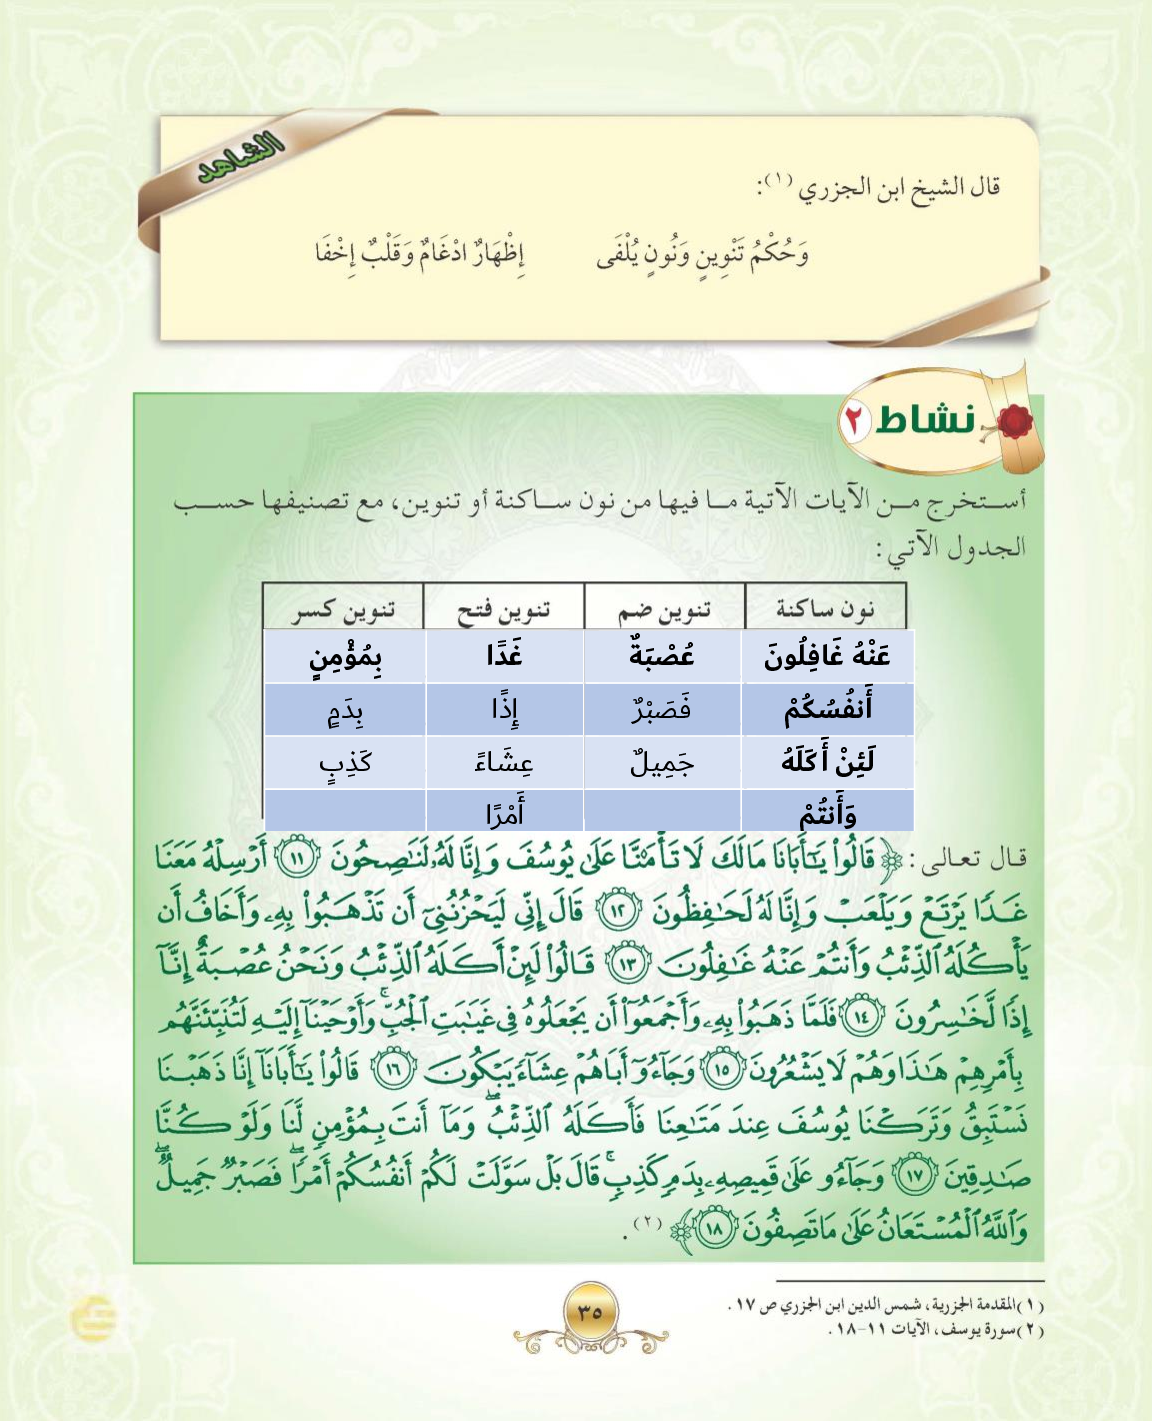 الشاهد
قال الشيخ ابن الجزري (١):
وَحُكْمُ تَنْوِينٍ وَنُونٍ يُلْفَى إِظْهَارٌ ادْغَامٌ وَقَلْبٌ إِخْفَا
نشاط ٢
أستخرج من الآيات الآتية ما فيها من نون ساكنة أو تنوين، مع تصنيفها حسب
الجدول الآتي:
نون ساكنة تنوين ضم تنوين فتح تنوين كسر
عَنْهُ غَافِلُونَ عُصْبَةٌ غَدًا بِمُؤْمِنٍ
أَنفُسُكُمْ فَصَبْرٌ إِذًا بِدَمٍ
لَئِنْ أَكَلَهُ جَمِيلٌ عِشَاءً كَذِبٍ
وَأَنتُمْ أَمْرًا
قال تعالى: ﴿قَالُوا۟ يَـٰٓأَبَانَا مَالَكَ لَا تَأْمَ۫نَّا عَلَىٰ يُوسُفَ وَإِنَّا لَهُۥ لَنَـٰصِحُونَ ١١ أَرْسِلْهُ مَعَنَا
غَدًا يَرْتَعْ وَيَلْعَبْ وَإِنَّا لَهُۥ لَحَـٰفِظُونَ ١٢ قَالَ إِنِّى لَيَحْزُنُنِىٓ أَن تَذْهَبُوا۟ بِهِۦ وَأَخَافُ أَن
يَأْكُلَهُ ٱلذِّئْبُ وَأَنتُمْ عَنْهُ غَـٰفِلُونَ ١٣ قَالُوا۟ لَئِنْ أَكَلَهُ ٱلذِّئْبُ وَنَحْنُ عُصْبَةٌ إِنَّآ
إِذًا لَّخَـٰسِرُونَ ١٤ فَلَمَّا ذَهَبُوا۟ بِهِۦ وَأَجْمَعُوٓا۟ أَن يَجْعَلُوهُ فِى غَيَـٰبَتِ ٱلْجُبِّ ۚ وَأَوْحَيْنَآ إِلَيْهِ لَتُنَبِّئَنَّهُم
بِأَمْرِهِمْ هَـٰذَا وَهُمْ لَا يَشْعُرُونَ ١٥ وَجَآءُوٓ أَبَاهُمْ عِشَآءً يَبْكُونَ ١٦ قَالُوا۟ يَـٰٓأَبَانَآ إِنَّا ذَهَبْنَا
نَسْتَبِقُ وَتَرَكْنَا يُوسُفَ عِندَ مَتَـٰعِنَا فَأَكَلَهُ ٱلذِّئْبُ ۖ وَمَآ أَنتَ بِمُؤْمِنٍ لَّنَا وَلَوْ كُنَّا
صَـٰدِقِينَ ١٧ وَجَآءُو عَلَىٰ قَمِيصِهِۦ بِدَمٍ كَذِبٍ ۚ قَالَ بَلْ سَوَّلَتْ لَكُمْ أَنفُسُكُمْ أَمْرًا ۖ فَصَبْرٌ جَمِيلٌ ۖ
وَٱللَّهُ ٱلْمُسْتَعَانُ عَلَىٰ مَا تَصِفُونَ ١٨﴾ (٢).
(١) المقدمة الجزرية، شمس الدين ابن الجزري ص ١٧.
(٢) سورة يوسف، الآيات ١١-١٨.
٣٥